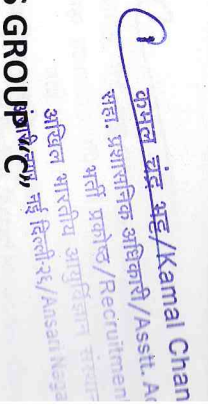 कमल चंद भट्ट/Kamal Chan
सहा. प्रशासनिक अधिकारी/Asstt. Ad
भर्ती प्रकोष्ठ/Recruitmen
अखिल भारतीय आयुर्विज्ञान संस्थान
नई दिल्ली-२९/Ansari Naga
GROUP "C"